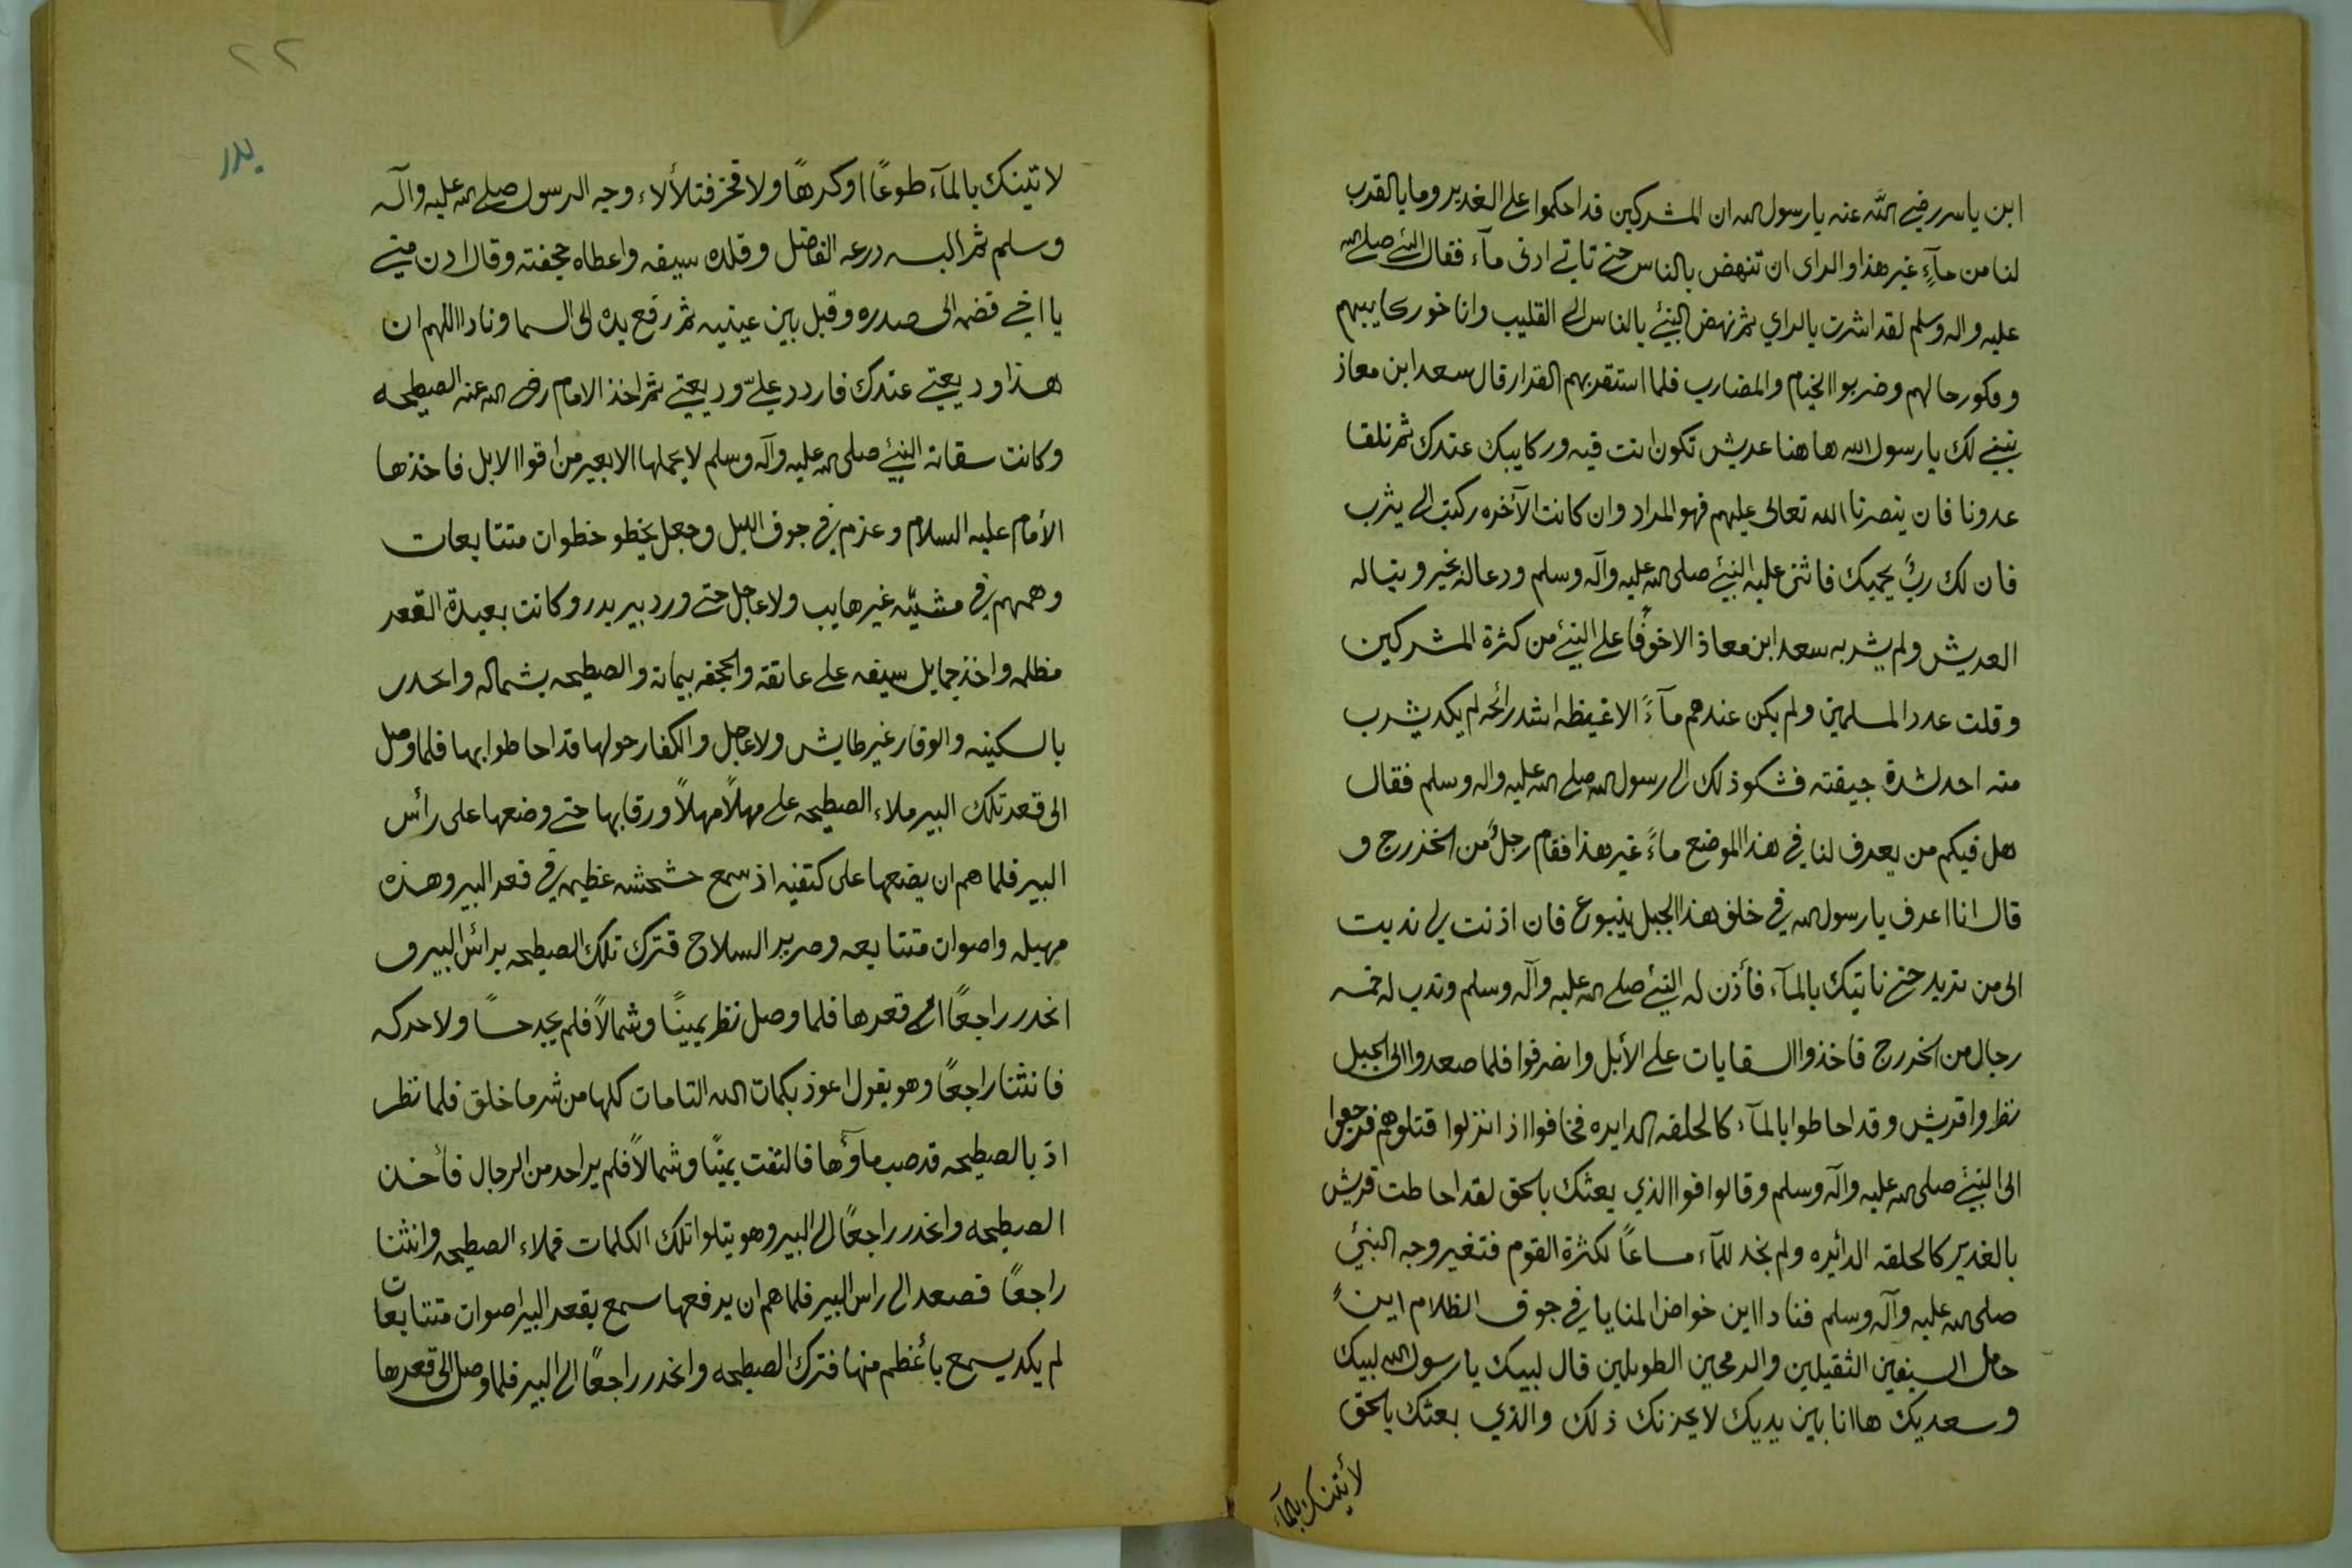 ابن ياسر رضي الله عنه يا رسول الله ان المشركين قد احكموا على الغدير وما بالقرب
لنا من مآءٍ غير هذا والراى ان تنهض بالناس حتى تاتي ادنى مآء فقال النبي صلى الله
عليه واله وسلم لقد اشرت بالراي ثم نهض النبئ بالناس الى القليب واناخو ركايبهم
وفكو رحالهم وضربوا الخيام والمضارب فلما استقر بهم القرار قال سعد ابن معاز
نبني لك يا رسول الله ها هنا عريش تكون انت فيه وركايبك عندك ثم نلقا
عدونا فان ينصرنا الله تعالى عليهم فهو المراد وان كانت الآخره ركبت الى يثرب
فان لك ربٌ يحميك فاثنى عليه النبئ صلى الله عليه وآله وسلم ودعا له بخير وبنا له
العريش ولم يشر به سعد ابن معاذ الا خوفًا على النبئ من كثرة المشركين
وقلت عدد المسلمين ولم يكن عندهم مآءً الا غيظه اشد رائحه لم يكد يشرب
منه احد لشدة جيفته فشكو ذلك الى رسول الله صلى الله عليه واله وسلم فقال
هل فيكم من يعرف لنا في هذا الموضع ماءً غير هذا فقام رجلٌ من الخزرج و
قال انا اعرف يا رسول الله في خلف هذا الجبل ينبوع فان اذنت لي نديت
الى من تريد حتى ناتيك بالمآء فأذن له النبئ صلى الله عليه وآله وسلم وندب له خمسه
رجال من الخزرج فاخذوا السقايات على الأبل وانصرفوا فلما صعدوا الى الجبل
نظروا قريش وقد احاطوا بالمآء كالحلقه الدايره فخافوا اذ انزلوا قتلوهم فرجعوا
الى النبئ صلى الله عليه وآله وسلم وقالوا فوا الذي بعثك بالحق لقد احاطت قريش
بالغدير كالحلقه الدائيره ولم نجد للمآء مساعاً لكثرة القوم فتغير وجه النبئ
صلى الله عليه وآله وسلم فنادا اين خواض المنايا في جوف الظلام اين
حامل السيفين الثقيلين والرمحين الطويلين قال لبيك يا رسول الله لبيك
وسعديك ها انا بين يديك لا يحزنك ذلك والذي بعثك بالحق
لأتينك بالمآء
٢٢
بدر
لاتينك بالمآء طوعًا اوكرهًا ولا فخز فتلألاء وجه الرسول صلى الله عليه وآله
وسلم ثم البسه درعه الفاضل وقلده سيفه واعطاه جحفته وقال ادن مني
يا اخي فضمه الى صدره وقبل بين عينيه ثم رفع يده الى السما ونادا اللهم ان
هذا وديعتي عندك فاردد عليّ وديعتي ثم اخذ الامام رضى الله عنه الصيطحه
وكانت سقاته النبئ صلى الله عليه وآله وسلم لا يحملها الا بعير من أقوا الابل فاخذها
الأمام عليه السلام وعزم في جوف الليل وجعل يخطو خطوان متتابعات
وهمهم في مشيّه غير هايب ولا عاجل حتى ورد بير بدر وكانت بعيدة القعر
مظلمه واخذ حمايل سيفه على عاتقه والجحفه بيمانه والصيطحه بشماله وانحدر
بالسكينه والوقار غير طايش ولا عاجل والكفار حولها قد احاطوا بها فلما وصل
الى قعر تلك البير ملاء الصيطحه على مهلاً مهلاً ورقا بها حتى وضعها على رأس
البير فلما هم ان يضعها على كتفيه اذ سمع خشخشه عظيمه في قعر البير وهذه
مهيله واصوات متتابعه وصرير السلاح فترك تلك الصيطحه برائس البير و
انحدر راجعًا الى قعرها فلما وصل نظر يمينًا وشمالاً فلم يجد حسًا ولا حركه
فانثنا راجعًا وهو يقول اعوذ بكلمات الله التامات كلها من شر ما خلق فلما نظر
اذ بالصيطحه قد صب ماؤها فالتفت يمينًا وشمالاً فلم ير احد من الرجال فأخذ
الصيطحه وانحدر راجعًا الى البير وهو يتلوا تلك الكلمات فملاء الصيطحه وانثنا
راجعًا فصعد الى راس البير فلما هم ان يرفعها سمع بقعر البير اصوات متتابعات
لم يكد يسمع بأعظم منها فترك الصيطحه وانحدر راجعًا الى البير فلما وصل الى قعرها